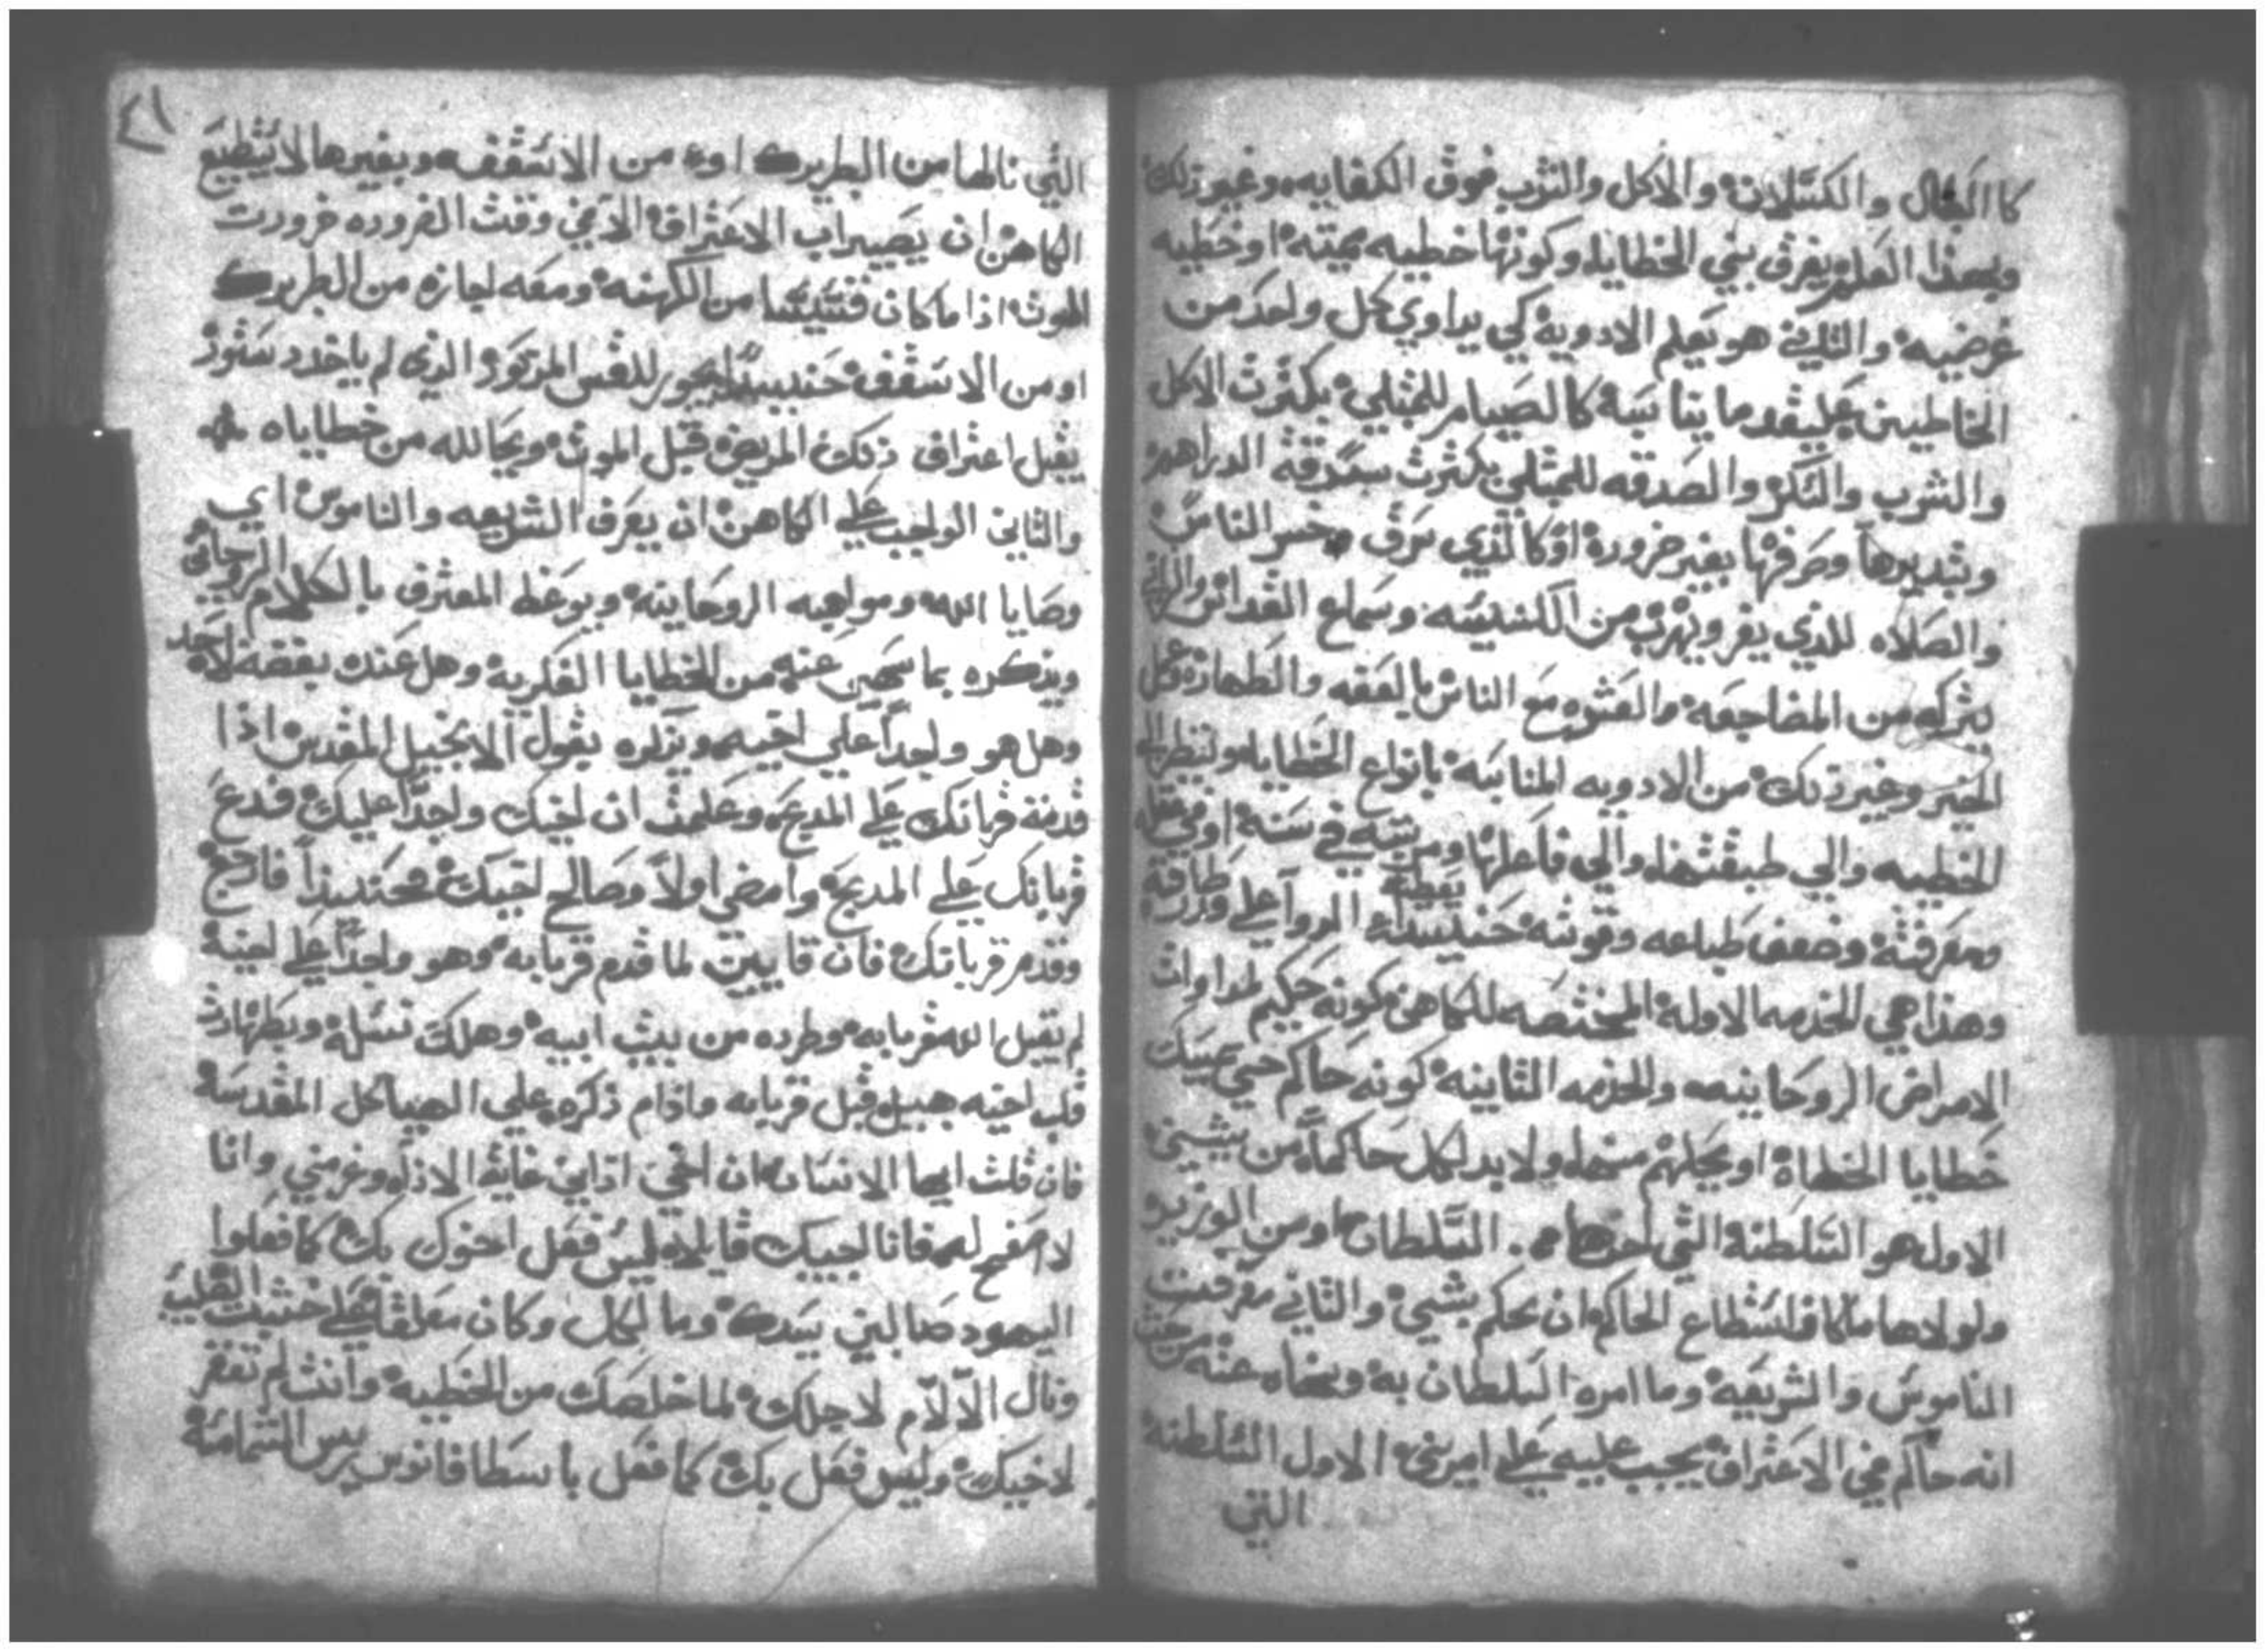 والكسلان والاكل والشرب فوق الكفايه وغير ذلك
وبهذا العلم يفرق بين الخطايا وكونها خطيه مميته او خطيه
عرضيه والثاني هو تعليم الادوية كي يداوي كل واحد من
الخاطيين علي قدر ما يناسبه كالصيام للمبتلي بكثرت الاكل
والشرب والسكر والصدقه للمبتلي بكثرت سرقة الدراهم
وتبديرها وصرفها بغير ضرورة او كالذي سرق الناس
والصلاه للذي يفر ويهرب من الكنيسه وسماع القداس
بتركه من المضاجعه والعشره مع الناس بالعفه والطهاره وعمل
الخير وغير ذلك من الادويه المناسبه بانواع الخطايا ولينظر الي
الخطيه والي طبقتها والي فاعلها ومرتبته في سنه او في عقله
ومعرفته وضعف طباعه وقوته حينيذ يعطيه الدوا علي قدر طاقته
وهذا هي الخدمه الاولة المختصه للكاهن كونه حكيم لمداوات
الامراض الروحانيه والخدمه الثانيه كونه حاكم حتي يمسك
خطايا الخطاة او يحلهم منها ولا بد لكل حاكماً من شيين
الاول هو السلطنة التي اخدها من السلطان او من الوزير
ولولاها ما كان استطاع الحاكم ان يحكم بشي والثاني معرفت
الناموس والشريعه وما امره السلطان به ونهاه عنه من حيث
انه حاكم في الاعتراف يجب عليه علي امرين الاول السلطنه
التي
٢١
التي نالها من البطريرك او من الاسقف وبغيرها لا يستطيع
الكاهن ان يصير اب الاعتراف الا في وقت الضروره ضرورت
الموت اذا ما كان قسيسا من الكهنه ومعه اجازه من البطريرك
او من الاسقف حينيذ يجوز للقس المذكور الذي لم ياخد دستور
يقبل اعتراف ذلك المريض قبل الموت ويحالله من خطاياه
والثاني الواجب علي الكاهن ان يعرف الشريعه والناموس اي
وصايا الله ومواهبه الروحانيه ويوعظ المعترف بالكلام الروحاني
ويذكره بما سهي عنه من الخطايا الفكرية وهل عنده بغضة لاحد
وهل هو واجداً علي اخيه وينذره بقول الانجيل المقدس اذا
قدمة قربانك علي المدبح وعلمت ان اخيك واجداً عليك فدع
قربانك علي المدبح وامضي اولاً وصالح اخيك وحينيذاً فارجع
وقدم قربانك فان قايين لما قدم قربانه وهو واجداً علي اخيه
لم يقبل الله قربانه وطرده من بيت ابيه وهلك نسله وبطهارت
قلب اخيه هبيل قبل قربانه وادام ذكره علي الهياكل المقدسة
فان قلت ايها الانسان ان اخي اذاني غاية الاذا وغرمني وانا
لا اصفح له فانا اجيبك قايلاً ليس فعل اخوك بك كما فعلوا
اليهود صالبين سيدك وما لكل وكان معلقاً علي خشبت الصليب
ونال الآلام لاجلك لما خلصك من الخطيه وانت لم تغفر
لاخيك وليس فعل بك كما فعل باسطافانوس ريس الشمامسة